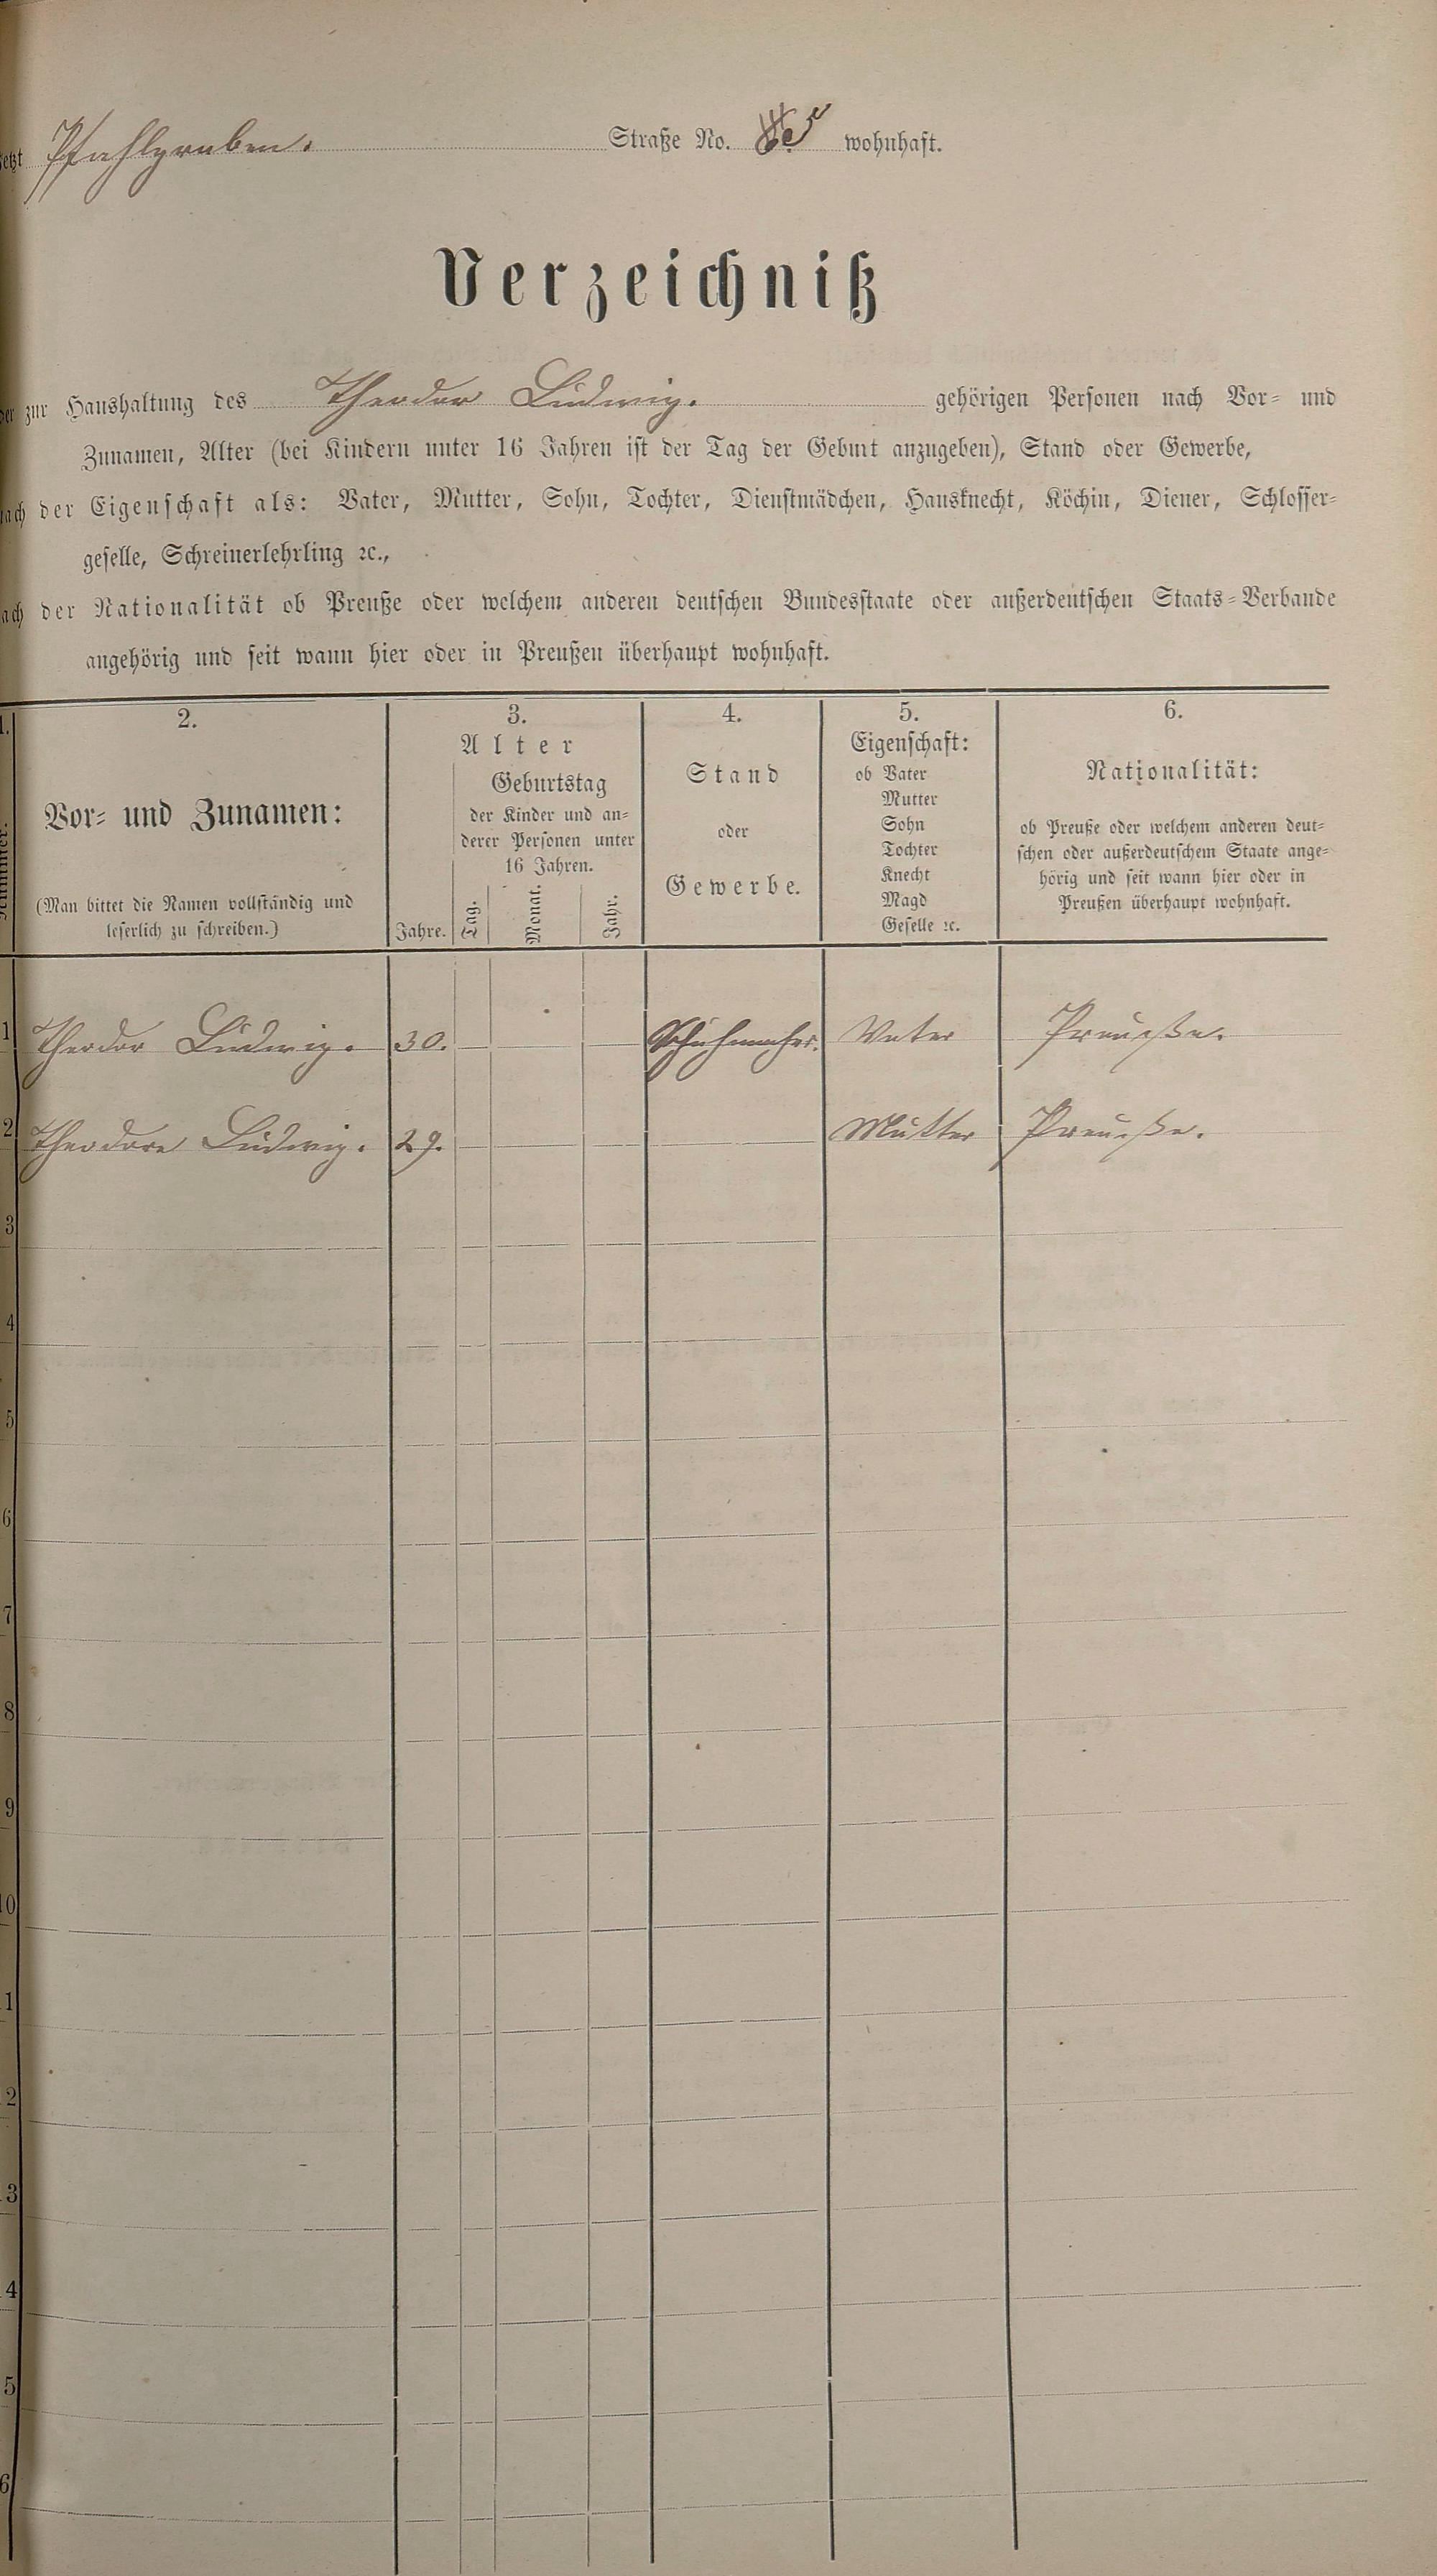 jetzt Pfahlgraben. Straße No. 5 wohnhaft.
Verzeichniß
der zur Haushaltung des Theodor Ludwig. gehörigen Personen nach Vor- und
Zunamen, Alter (bei Kindern unter 16 Jahren ist der Tag der Geburt anzugeben), Stand oder Gewerbe,
nach der Eigenschaft als: Vater, Mutter, Sohn, Tochter, Dienstmädchen, Hausknecht, Köchin, Diener, Schlosser-
geselle, Schreinerlehrling ꝛc.,
nach der Nationalität ob Preuße oder welchem anderen deutschen Bundesstaate oder außerdeutschen Staats-Verbande
angehörig und seit wann hier oder in Preußen überhaupt wohnhaft.
1. 2. 3. 4. 5. 6.
Nummer.
Vor- und Zunamen:
(Man bittet die Namen vollständig und
leserlich zu schreiben.)
Alter
Jahre.
Geburtstag
der Kinder und an-
derer Personen unter
16 Jahren.
Tag. Monat. Jahr.
Stand
oder
Gewerbe.
Eigenschaft:
ob Vater
Mutter
Sohn
Tochter
Knecht
Magd
Geselle ꝛc.
Nationalität:
ob Preuße oder welchem anderen deut-
schen oder außerdeutschem Staate ange-
hörig und seit wann hier oder in
Preußen überhaupt wohnhaft.
1 Theodor Ludwig. 30. Schuhmacher. Vater Preuße.
2 Theodore Ludwig. 29. Mutter Preuße.
3
4
5
6
7
8
9
10
1
2
3
4
5
6